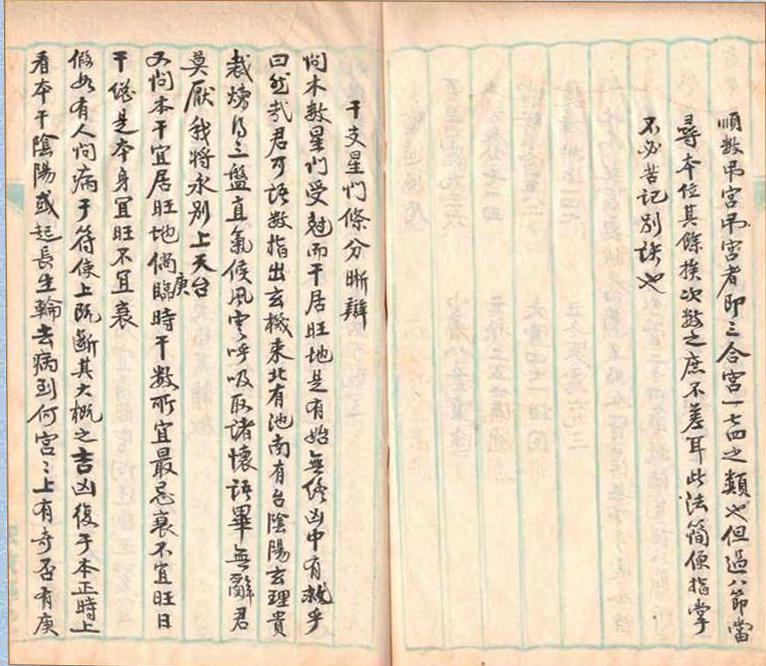 順數吊宮吊宮者即三合宮一七四之類也但過八節當
尋本位其餘挨次數之庶不差耳此法簡便指掌
不必苦記別訣也
干支星門條分晰辯
問本數星門受尅而干居旺地是有始無終凶中有救乎
曰然哉君可語數指出玄機東北有池南有台陰陽玄理貴
裁得三盤直氣候風雲呼吸取諸懷語畢無辭君
莫厭我將永別上天台
又問本干宜居旺地倘庚臨時干數所宜最忌衰不宜旺日
干縂是本身宜旺不宜衰
假如有人問病于符使上既斷其大概之吉凶復于本正時上
看本干陰陽或起長生輪去病到何宮〻上有奇否有庚